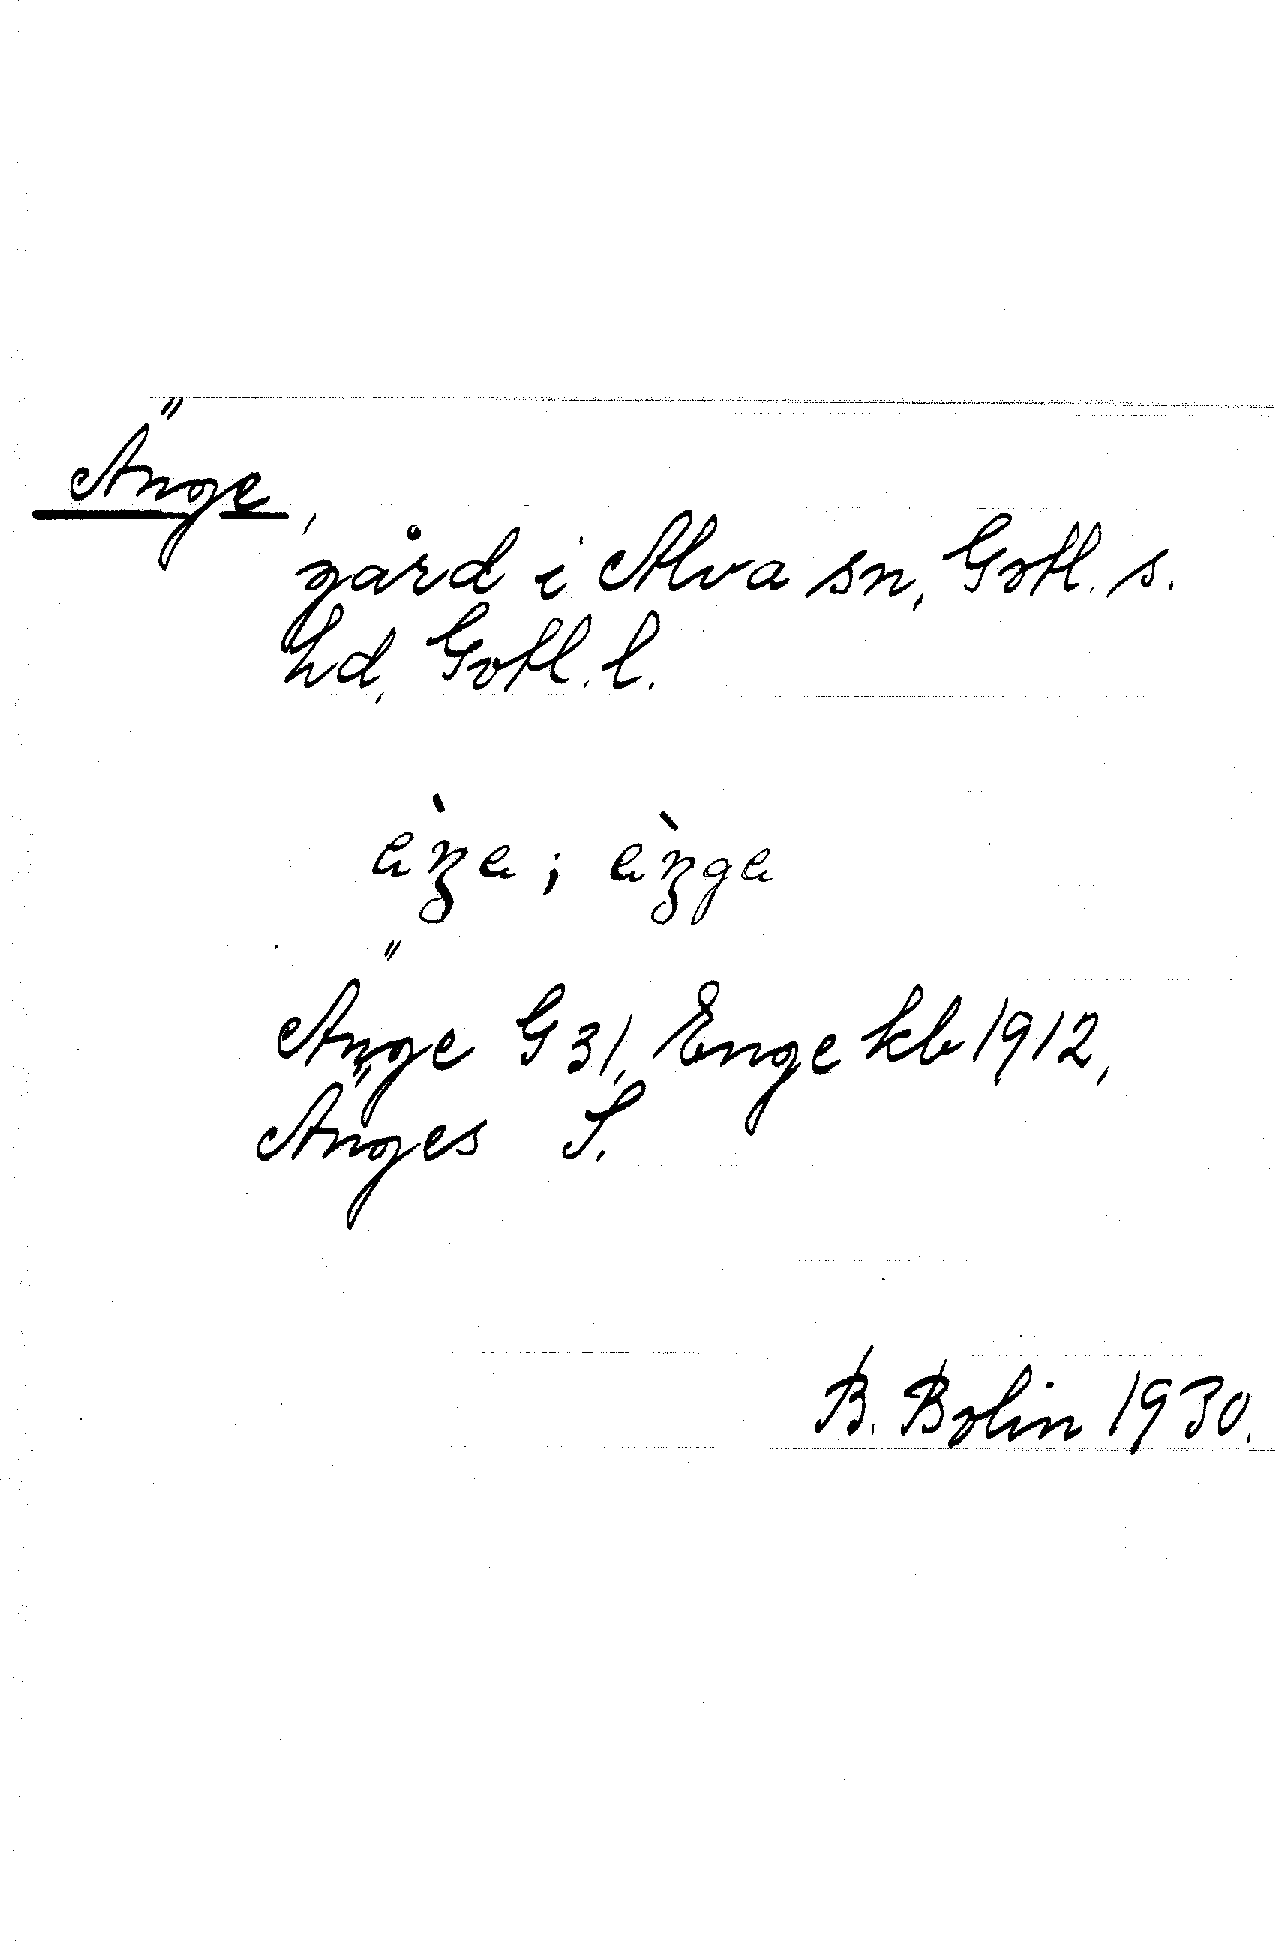 Änge,
gård i Alva sn, Gotl. s.
hd, Gotl. l.
Änge G 31, Enge kb 1912,
Änges S.
B. Bolin 1930.